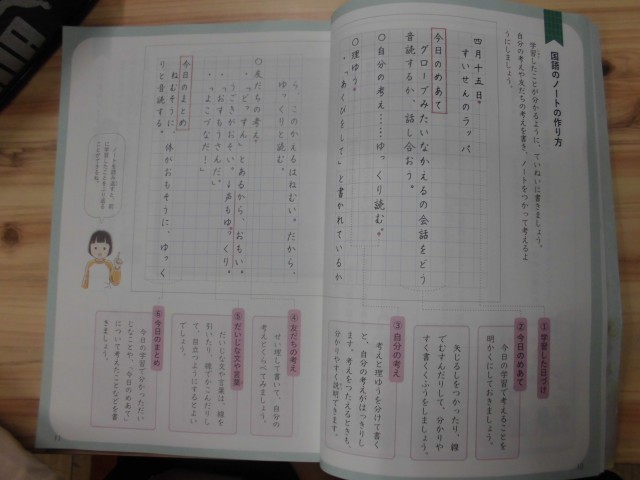 国語のノートの作り方
学習したことが分かるように、ていねいに書きましょう。
自分の考えや友だちの考えを書き、ノートをつかって考えるよ
うにしましょう。
四月十五日
すいせんのラッパ
今日のめあて
グローブみたいなかえるの会話をどう
音読するか、話し合おう。
○自分の考え……ゆっくり読む。
○理ゆう。
・「あくびまじり」と書かれているか
ら、このかえるはねむい。だから、
ゆっくりと読む。
○友だちの考え。
・「ど、すん」とあるから、おもい。
うごきがおそい。→声もゆっくり。
・「おすもうさんだ。」
・「よこづなだ!」
今日のまとめ
ねむそうに、体がおもそうに、ゆっく
りと音読する。
①学習した日づけ
②今日のめあて
今日の学習で考えることを
明かくにしておきましょう。
矢じるしをつかったり、線
でむすんだりして、分かりや
すく書くくふうをしましょう。
③自分の考え
考えと理ゆうを分けて書く
と、自分の考えがはっきりし
ます。考えをつたえるときも、
分かりやすく説明できます。
④友だちの考え
せい理して書いて、自分の
考えとくらべてみましょう。
⑤だいじな文や言葉
だいじな文や言葉は、線を
引いたり、線でかこんだりし
て、目立つようにするとよい
でしょう。
⑥今日のまとめ
今日の学習で分かっただい
じなことや、「今日のめあて」
について考えたことなどを書
きましょう。